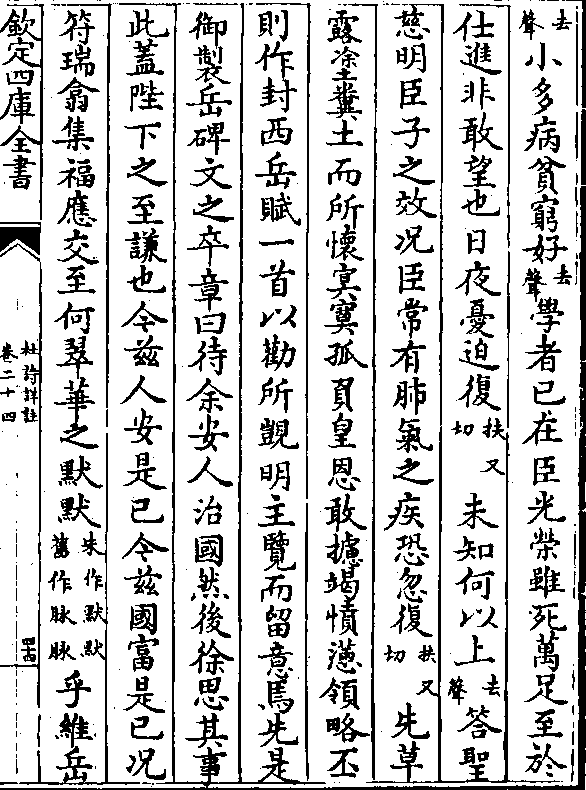 去聲小多病貧窮好去聲學者已在臣光榮雖死萬足至於
仕進非敢望也日夜憂迫復扶又切未知何以上去聲答聖
慈明臣子之效况臣常有肺氣之疾恐忽復扶又切先草
露塗糞土而所懷㝠寞孤負皇恩敢攄竭憤懣領略丕
則作封西岳賦一首以勸所覬明主覽而留意焉先是
御製岳碑文之卒章曰待余安人治國然後徐思其事
此蓋陛下之至謙也今兹人安是已今兹國富是已况
符瑞翕集福應交至何翠華之默默朱作默默舊作脉脉乎維岳
欽定四庫全書
杜詩詳註
卷二十四
四